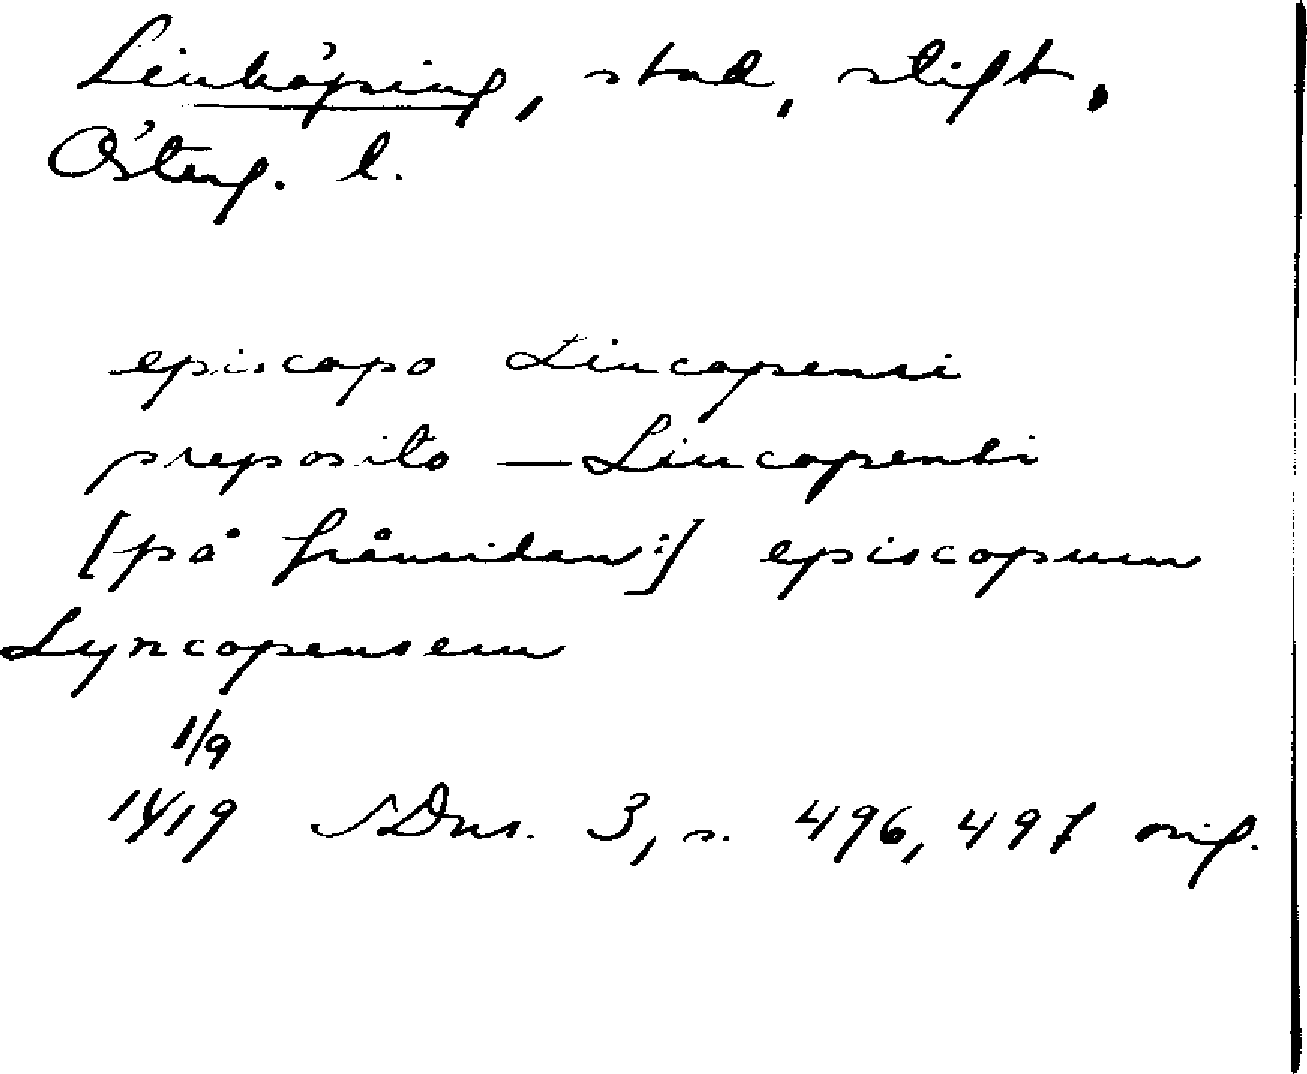 Linköping, stad, stift,
Österg. l.
episcopo Lincopensi
preposito — Lincopensi
[på frånsidan:] episcopum
Lyncopensem
1/9
1419 SDns. 3, s. 496, 497 orig.